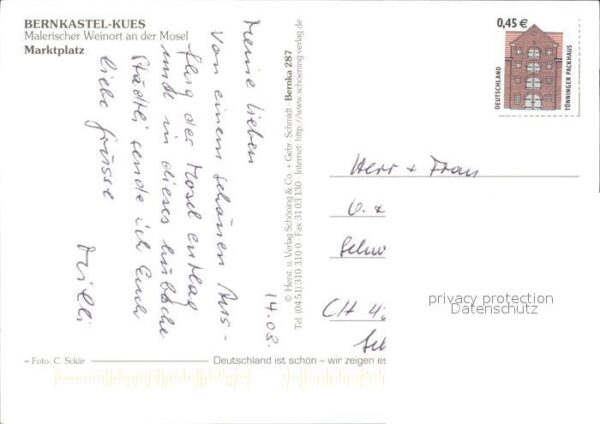 BERNKASTEL-KUES
Malerischer Weinort an der Mosel
Marktplatz
14.08.
Meine lieben
Von einem schönen Aus-
flug der Mosel entlag
und in dieses hübsche
Städtli sende ich Euch
liebe Grüsse
© Herst. u. Verlag Schöning & Co. + Gebr. Schmidt Bernka 287
Tel. (04 51) 310 310 0 Fax 31 03 130 · Internet: http://www.schoening-verlag.de
0,45 €
DEUTSCHLAND
TÖNNINGER PACKHAUS
Herr + Frau
CH
privacy protection
Datenschutz
– Foto: C. Sckär
Deutschland ist schön – wir zeigen es